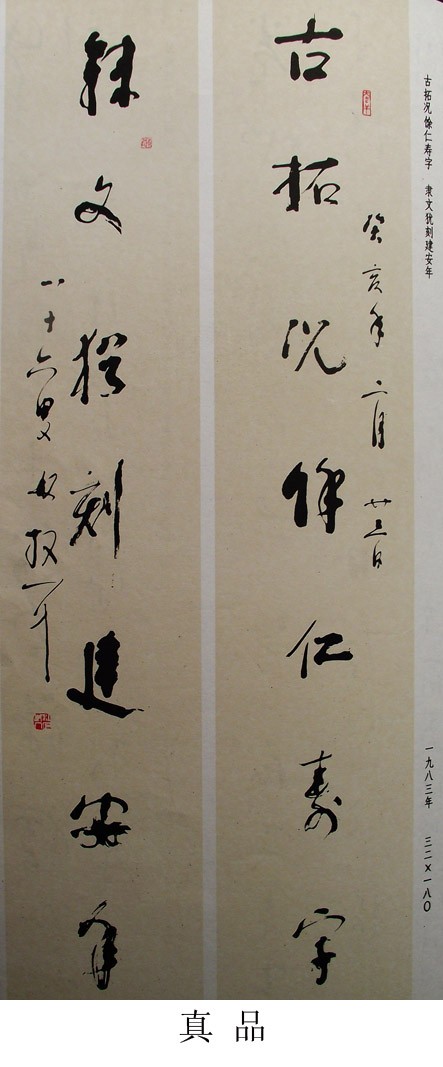 古拓况馀仁寿字 隶文犹刻建安年
一九八三年 三二×一八〇
癸亥年二月廿三日
古拓况馀仁寿字
隶文犹刻建安年
真品